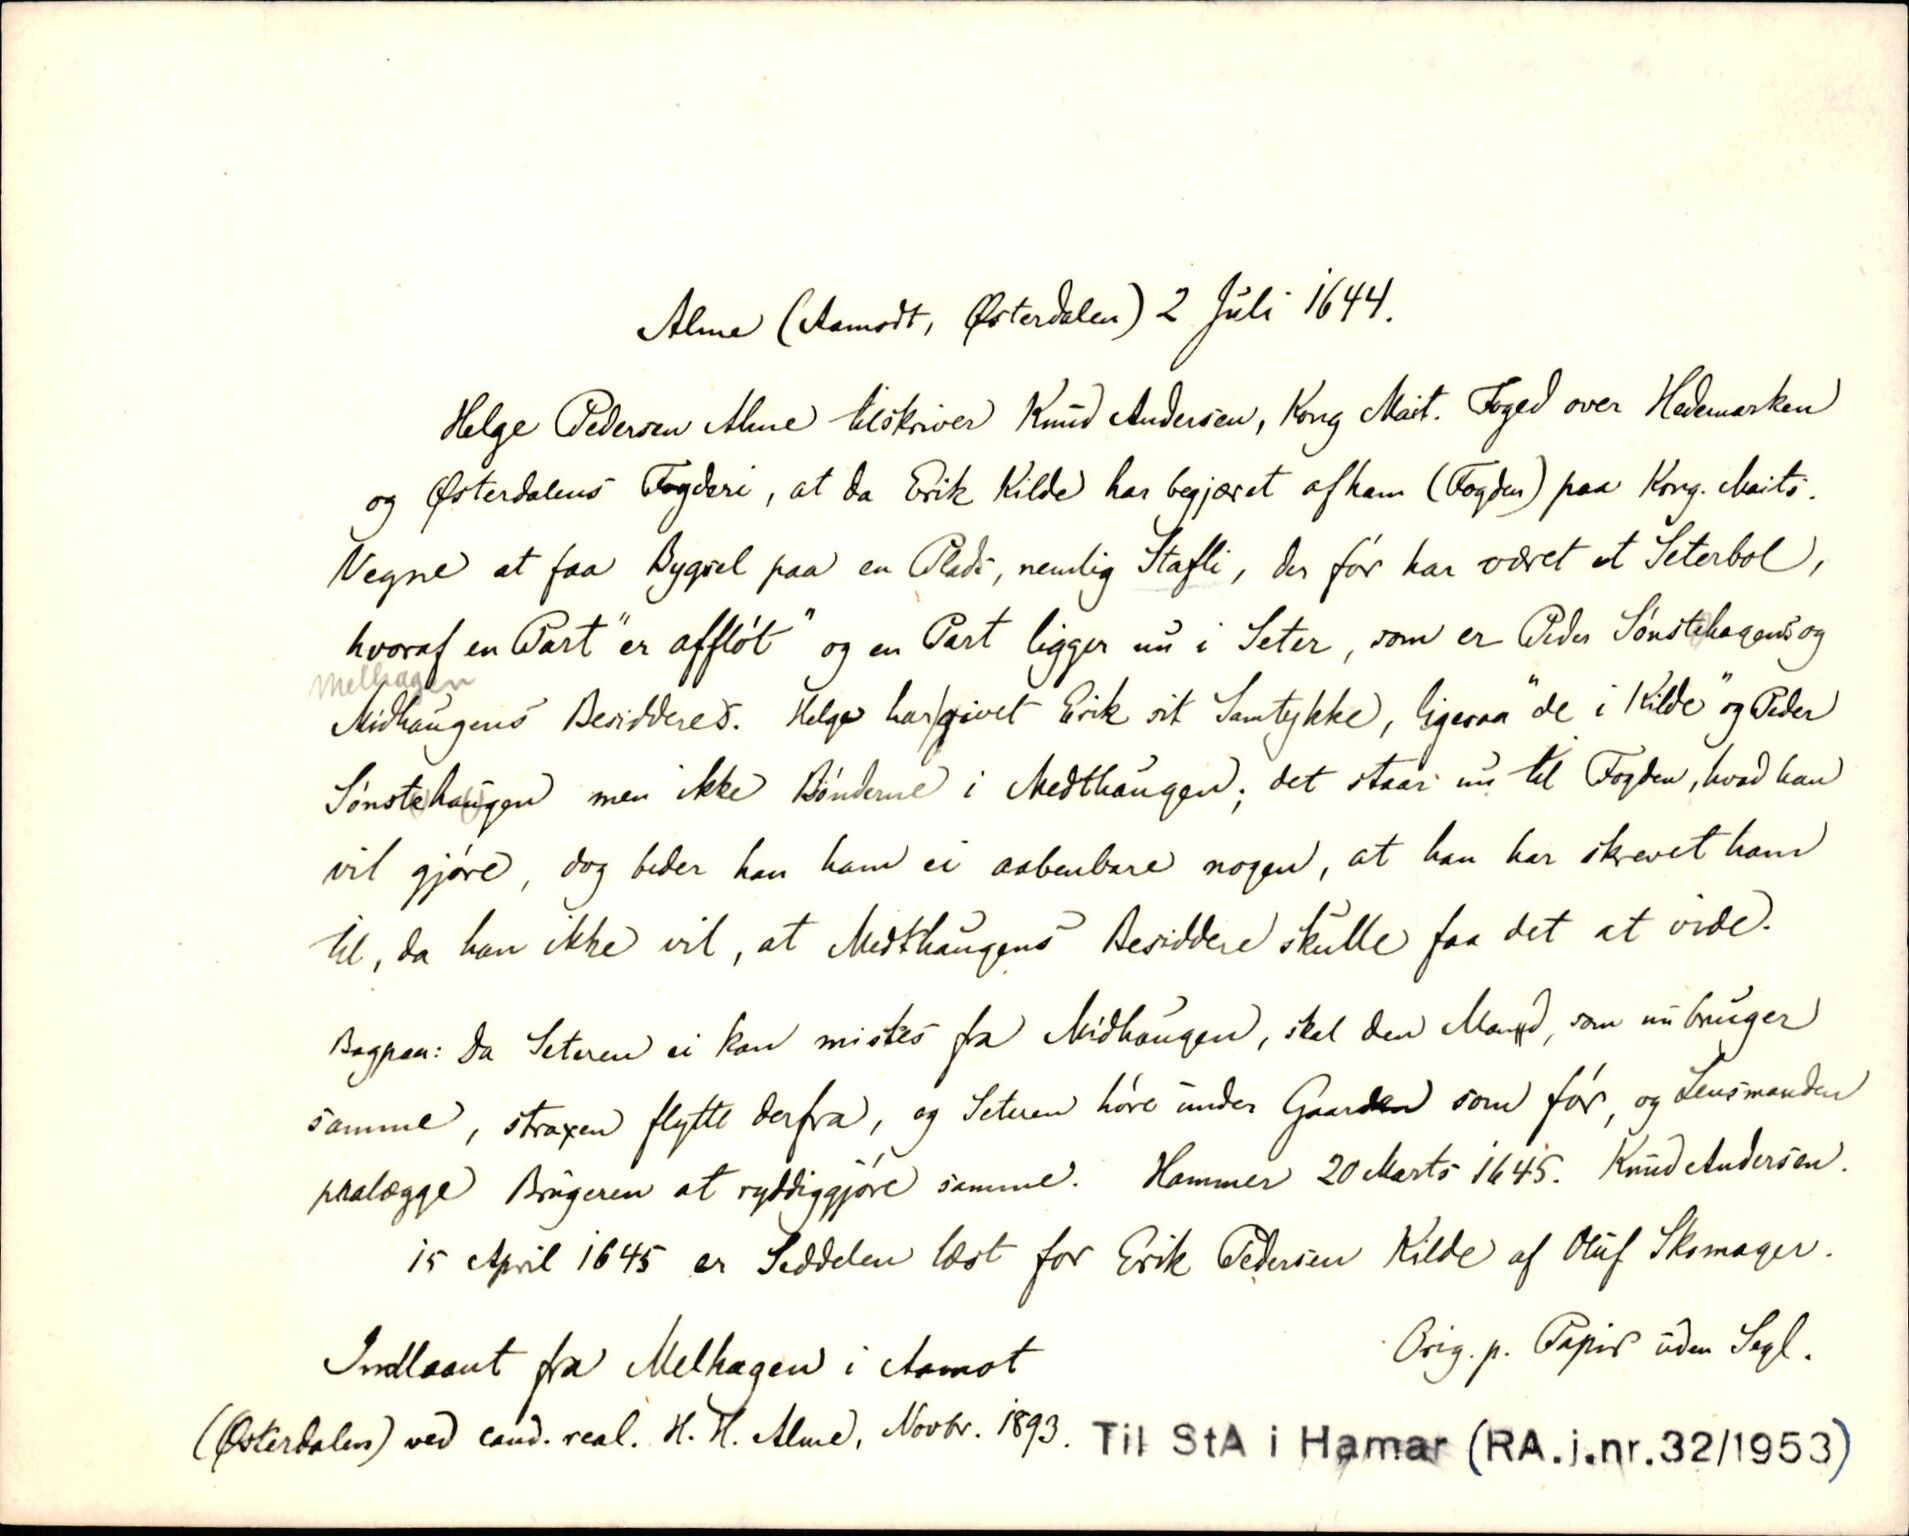 Alme (Aamodt, Østerdalen) 2 Juli 1644.
Helge Pedersen Alme tilskriver Knud Andersen, Kong Mait. Foged over Hedemarken
og Østerdalens Fogderi, at da Erik Kilde har begjæret af ham (Fogden) paa Kong. Maits.
Vegne at faa Bygsel paa en Plads, nemlig Stafli, der før har været et Seterbol,
hvoraf en Part "er affløt" og en Part ligger nu i Seter, som er Peder Sønstehagens og
Melhagen
Midhaugens Besidderes. Helge har givet Erik sit Samtykke, ligesaa "de i Kilde" og Peder
Sønstehaugen men ikke Bønderne i Medthaugen; det staar nu til Fogden, hvad han
vil gjøre, dog beder han ham ei aabenbare nogen, at han har skrevet ham
til, da han ikke vil, at Medthaugens Besiddere skulle faa det at vide.
Bagpaa: Da Seteren ei kan mistes fra Midhaugen, skal den Mand, som nu bruger
samme, straxen flytte derfra, og Seteren høre under Gaarden som før, og Lensmanden
paalægge Brugeren at ryddiggjøre samme. Hammer 20 Marts 1645. Knud Andersen.
15 April 1645 er Seddelen læst for Erik Pedersen Kilde af Oluf Skomager.
Orig. p. Papir uden Segl.
Indlaant fra Melhagen i Aamot
(Østerdalen) ved cand. real. H. H. Alme, Novbr. 1893.
Til StA i Hamar (RA.j.nr.32/1953)